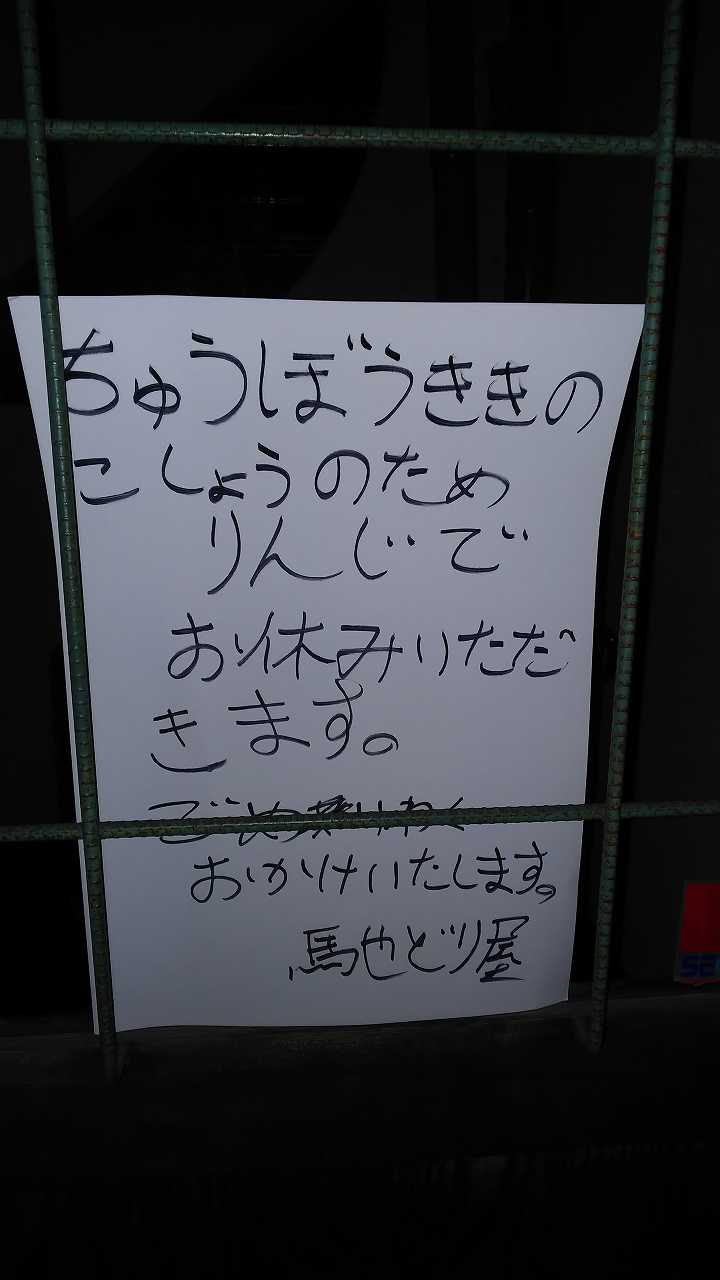 ちゅうぼうききの
こしょうのため
りんじで
お休みいただ
きます。
おかけいたします。
馬也どり屋
SE